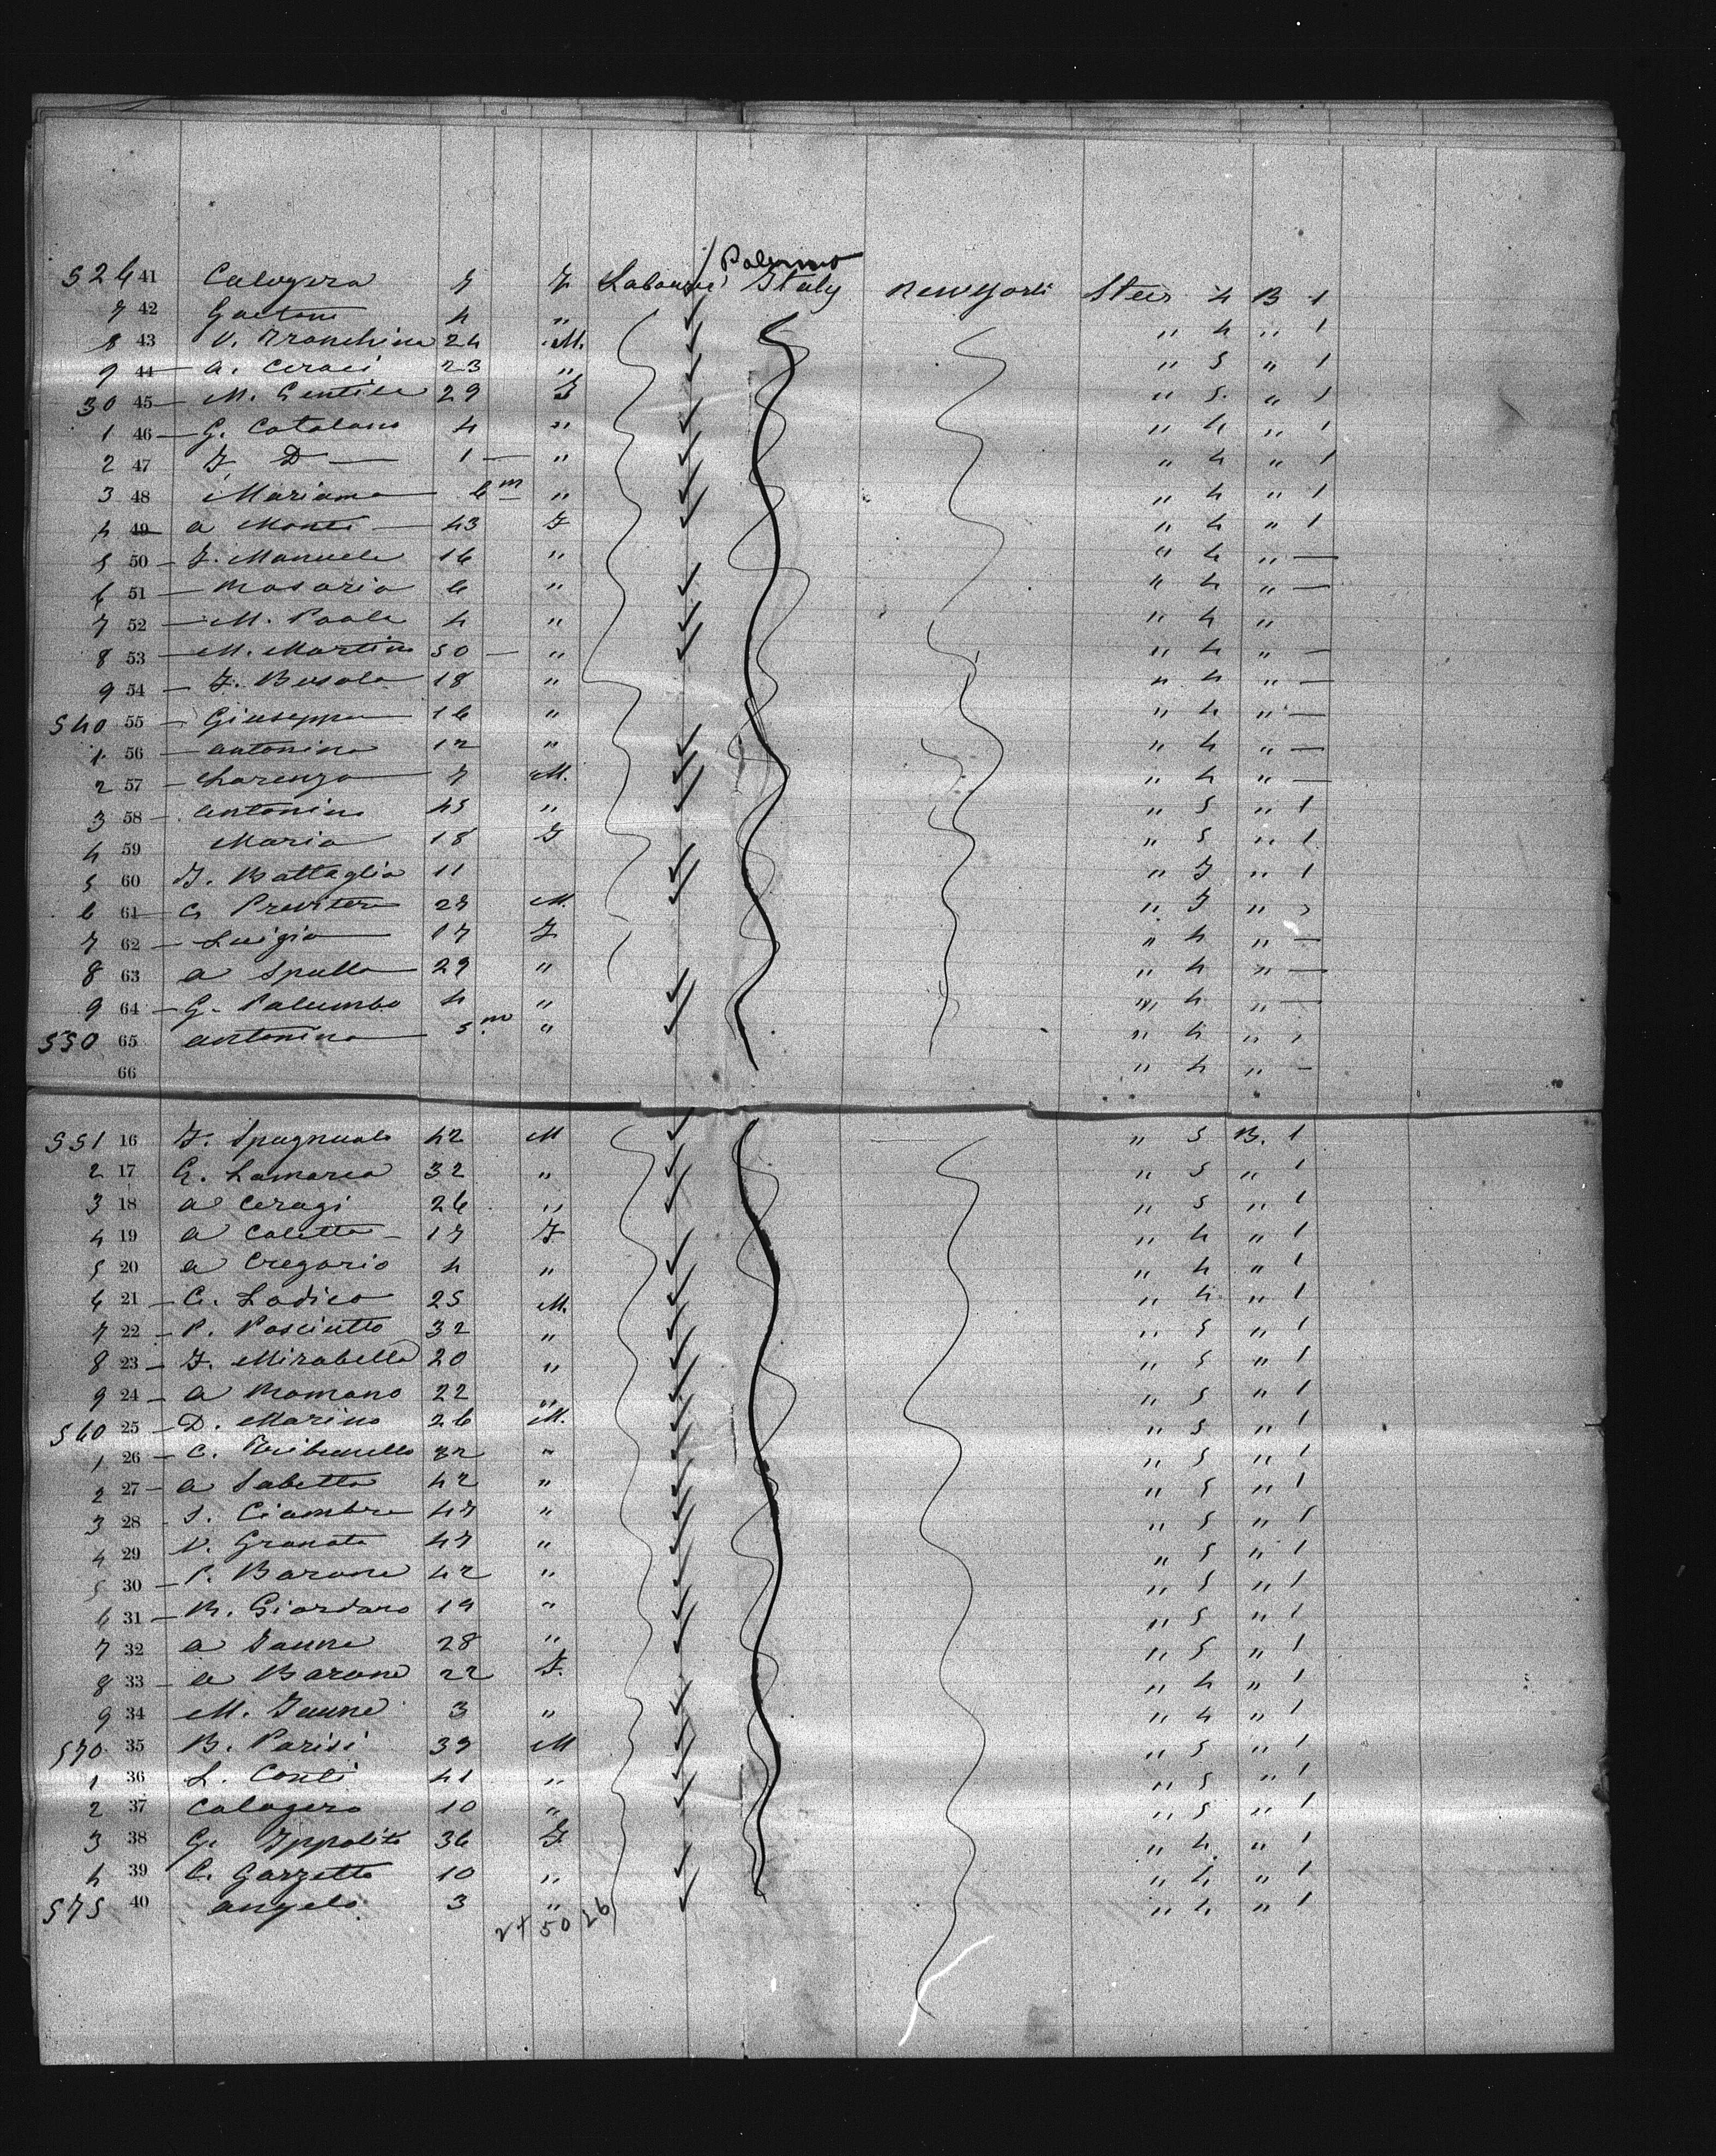 Palermo
526 41 Calogera 7 F Labourer Italy New York Steer 4 B 1
7 42 Gaetana 4 " " 4 " 1
8 43 V. Tranchina 24 M. " 5 " 1
9 44 a. Ceraci 23 " " 5 " 1
30 45 M. Gentile 29 F " 4 " 1
1 46 G. Catalano 4 " " 4 " 1
2 47 F. D 1 " " 4 " 1
3 48 Marianna 6m " " 4 " 1
4 49 a Monti 43 F " 4 " —
5 50 F. Manuele 16 " " 4 " —
6 51 Rosaria 6 " " 4 "
7 52 M. Paola 4 " " 4 " —
8 53 M. Martino 50 " " 4 " —
9 54 F. Busala 18 " " 4 " —
540 55 Giuseppa 16 " " 4 " —
1 56 antonina 12 " " 4 " —
2 57 Lorenzo 7 M. " 5 " 1
3 58 antonino 45 " " 5 " 1
4 59 Maria 18 F
5 60 F. Battaglia 11 " F " 1
6 61 G 27 M. " F "
7 62 Luigia 17 F " 4 " —
8 63 a Spulla 29 " " 4 " —
9 64 G. Palumbo 4 " " 4 " —
550 65 antonina 5m " " 4 "
66 " 4 " -
551 16 F. Spagnuolo 42 M " 5 B. 1
2 17 G. Lamarca 32 " " 5 " 1
3 18 a Ceragi 26 " " 5 " 1
4 19 a Coletta 17 F " 4 " 1
5 20 a Cregorio 4 " " 4 " 1
6 21 C. Lodico 25 M. " 4 " 1
7 22 P. Pasciutto 32 " " 5 " 1
8 23 F. Mirabella 20 " " 5 " 1
9 24 a Romano 22 " " 5 " 1
560 25 D. Marino 26 M. " 5 " 1
1 26 C. 32 " " 5 " 1
2 27 a Sabetta 42 " " 5 " 1
3 28 S. Ciambra 47 " " 5 " 1
4 29 V. Granata 47 " " 5 " 1
5 30 P. Barone 42 " " 5 " 1
6 31 R. Giordano 19 " " 5 " 1
7 32 a Ianne 28 " " 5 " 1
8 33 a Barone 22 F. " 4 " 1
9 34 M. Ianne 3 " " 4 " 1
570 35 B. Parisi 39 M " 5 " 1
1 36 L. Conti 41 " " 5 " 1
2 37 Calogero 10 " " 5 " 1
3 38 G. Ippolito 36 F " 4 " 1
4 39 C. Garzetta 10 " " 4 " 1
575 40 angelo 3 " " 4 " 1
24 50 26